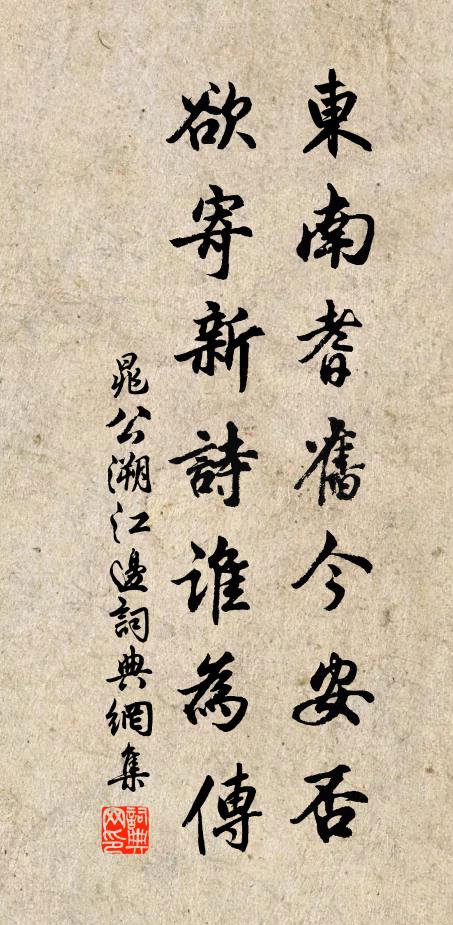 東南耆舊今安否
欲寄新詩誰為傳
晁公溯江邊詞典網集
詞典網印